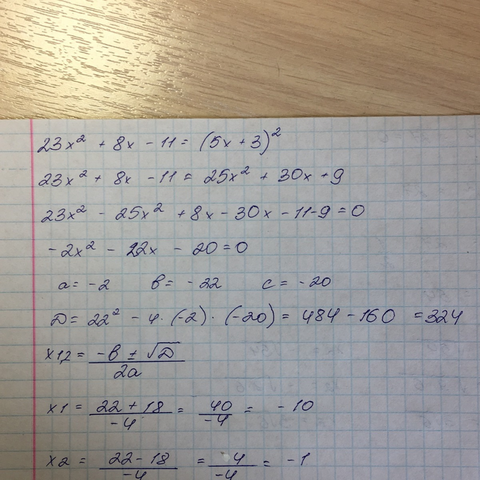 23x² + 8x - 11 = (5x + 3)²
23x² + 8x - 11 = 25x² + 30x + 9
23x² - 25x² + 8x - 30x - 11 - 9 = 0
-2x² - 22x - 20 = 0
a = -2 в = -22 c = -20
D = 22² - 4 · (-2) · (-20) = 484 - 160 = 324
x1,2 = (-в ± √D) / 2a
x1 = (22 + 18) / -4 = 40 / -4 = -10
x2 = (22 - 18) / -4 = 4 / -4 = -1